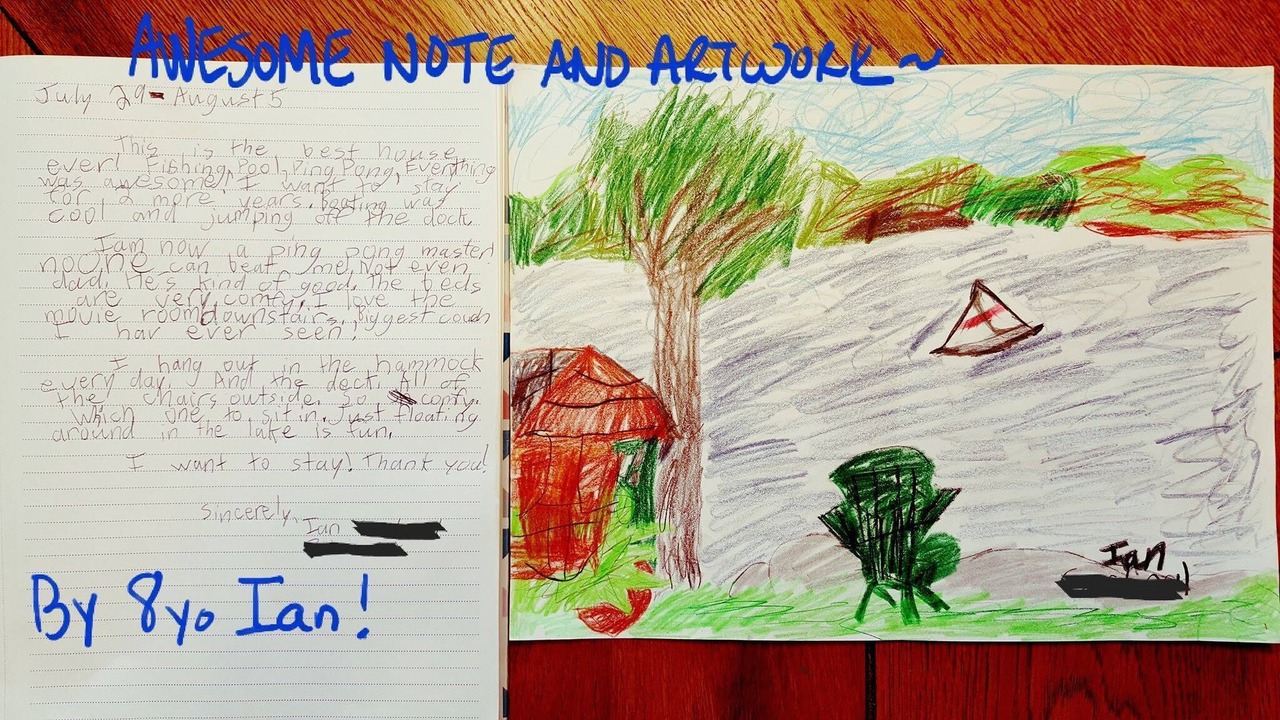 AWESOME NOTE AND ARTWORK~
July 29- August 5
This is the best house
ever! Fishing, Pool, Ping Pong, Everything
was awesome, I want to stay
for 2 more years. boating was
cool and jumping off the dock
I am now a ping pong master
noone can beat me, not even
dad. He's kind of good. The beds
are very comfy. I love the
movie room downstairs. Biggest couch
I hav ever seen!
I hang out in the hammock
every day. And the deck. All of
the chairs outside. So comfy.
which one to sit in. Just floating
around in the lake is fun.
I want to stay! Thank you!
Sincerely,
Ian
By 8yo Ian!
Ian